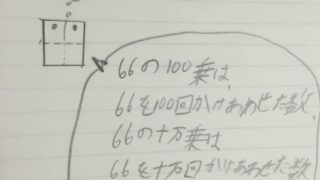 66の100乗は、
66を100回かけあわせた数、
66の十万乗は
66を十万回かけあわせた数